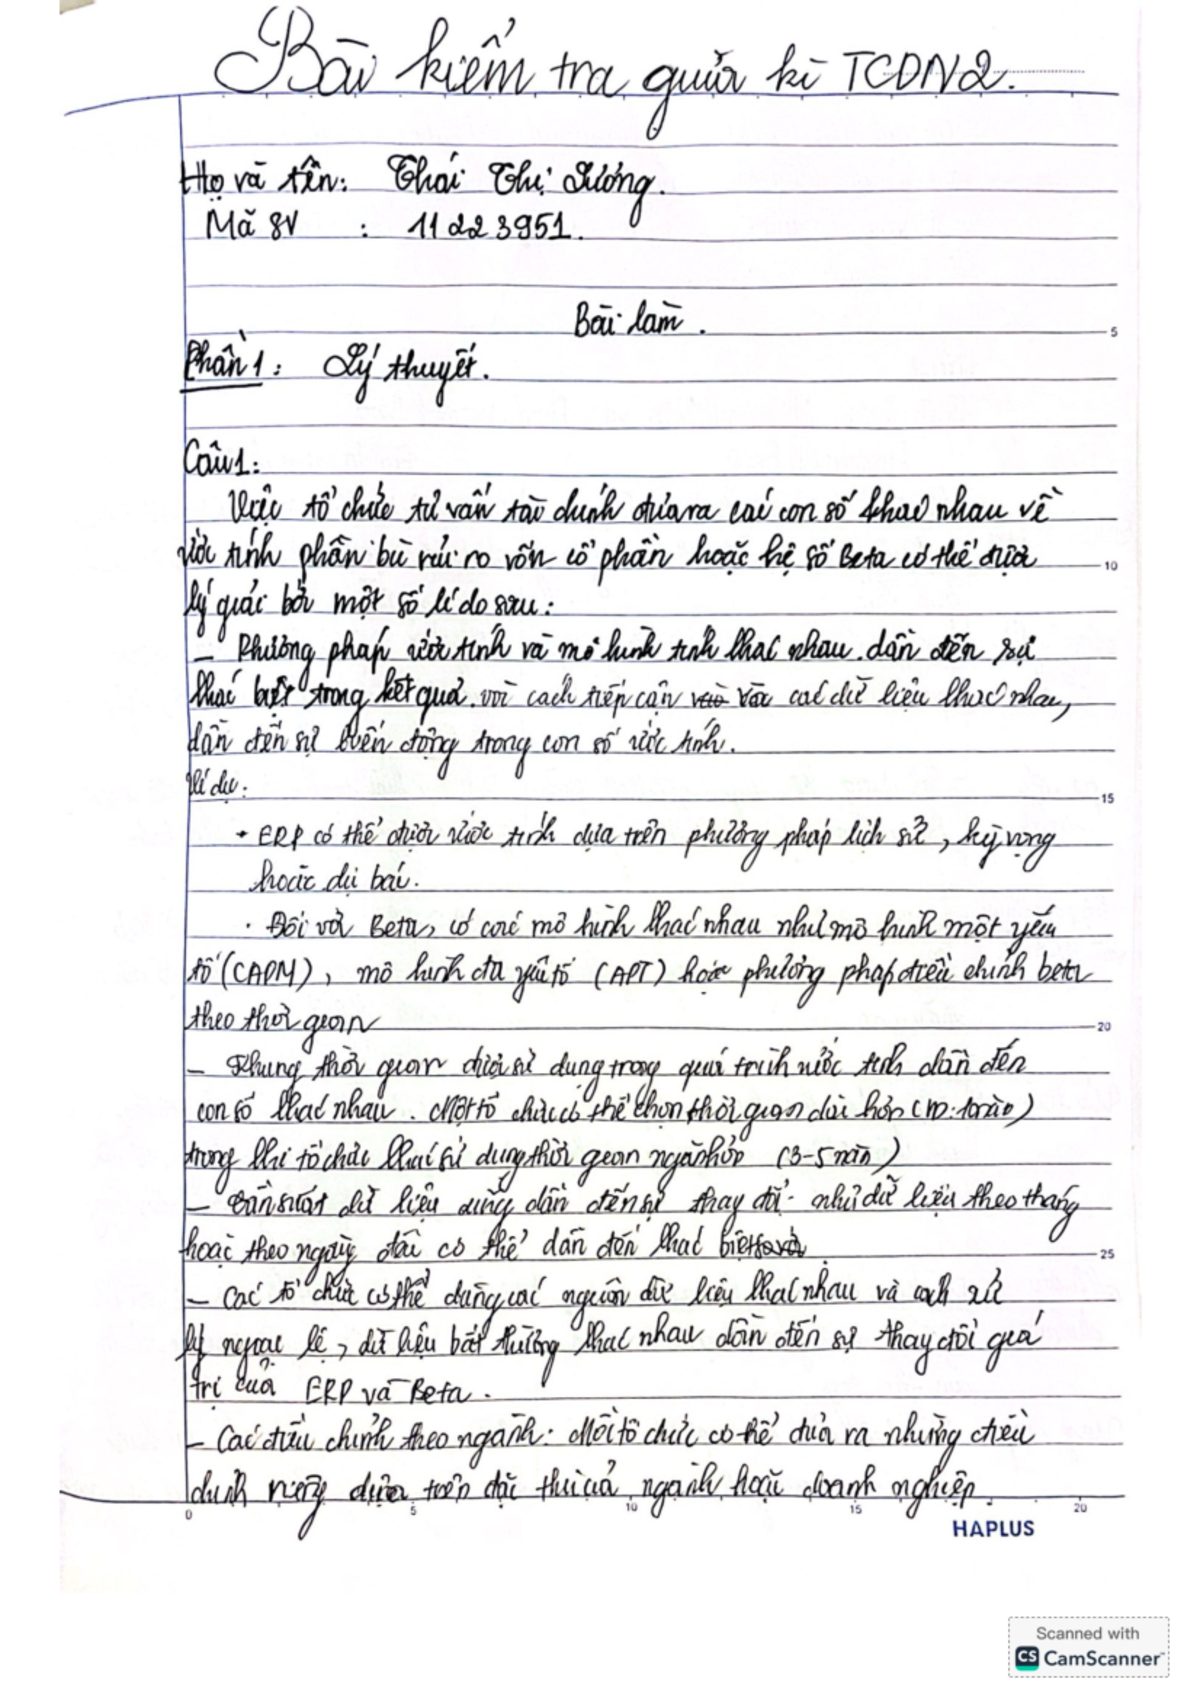 Bài kiểm tra giữa kì TCDN2.
Họ và tên: Thái Thị Dương.
Mã SV : 11223951.
Bài làm.
5
Phần 1: Lý thuyết.
Câu 1:
Việc tổ chức tư vấn tài chính đưa ra các con số khác nhau về
ước tính phần bù rủi ro vốn cổ phần hoặc hệ số Beta có thể được
10
lý giải bởi một số lí do sau:
- Phương pháp ước tính và mô hình tính khác nhau dẫn đến sự
khác biệt trong kết quả. với cách tiếp cận và các dữ liệu khác nhau,
dẫn đến sự biến động trong con số ước tính.
Ví dụ:
15
+ ERP có thể được ước tính dựa trên phương pháp lịch sử, kỳ vọng
hoặc dự báo.
· Đối với Beta, có các mô hình khác nhau như mô hình một yếu
tố (CAPM), mô hình đa yếu tố (APT) hoặc phương pháp điều chỉnh beta
theo thời gian
20
- Khung thời gian được sử dụng trong quá trình ước tính dẫn đến
con số khác nhau. Một tổ chức có thể chọn thời gian dài hơn (VD: 10 năm)
trong khi tổ chức khác sử dụng thời gian ngắn hơn (3-5 năm)
- Tần suất dữ liệu dùng dẫn đến sự thay đổi. như dữ liệu theo tháng
hoặc theo ngày đều có thể dẫn đến khác biệt
25
- Các tổ chức có thể dùng các nguồn dữ liệu khác nhau và cách xử
lý ngoại lệ, dữ liệu bất thường khác nhau dẫn đến sự thay đổi giá
trị của ERP và Beta.
- Các điều chỉnh theo ngành: Mỗi tổ chức có thể đưa ra những điều
chỉnh riêng dựa trên đặc thù của ngành hoặc doanh nghiệp.
0 5 10 15 20
HAPLUS
Scanned with
CS CamScanner